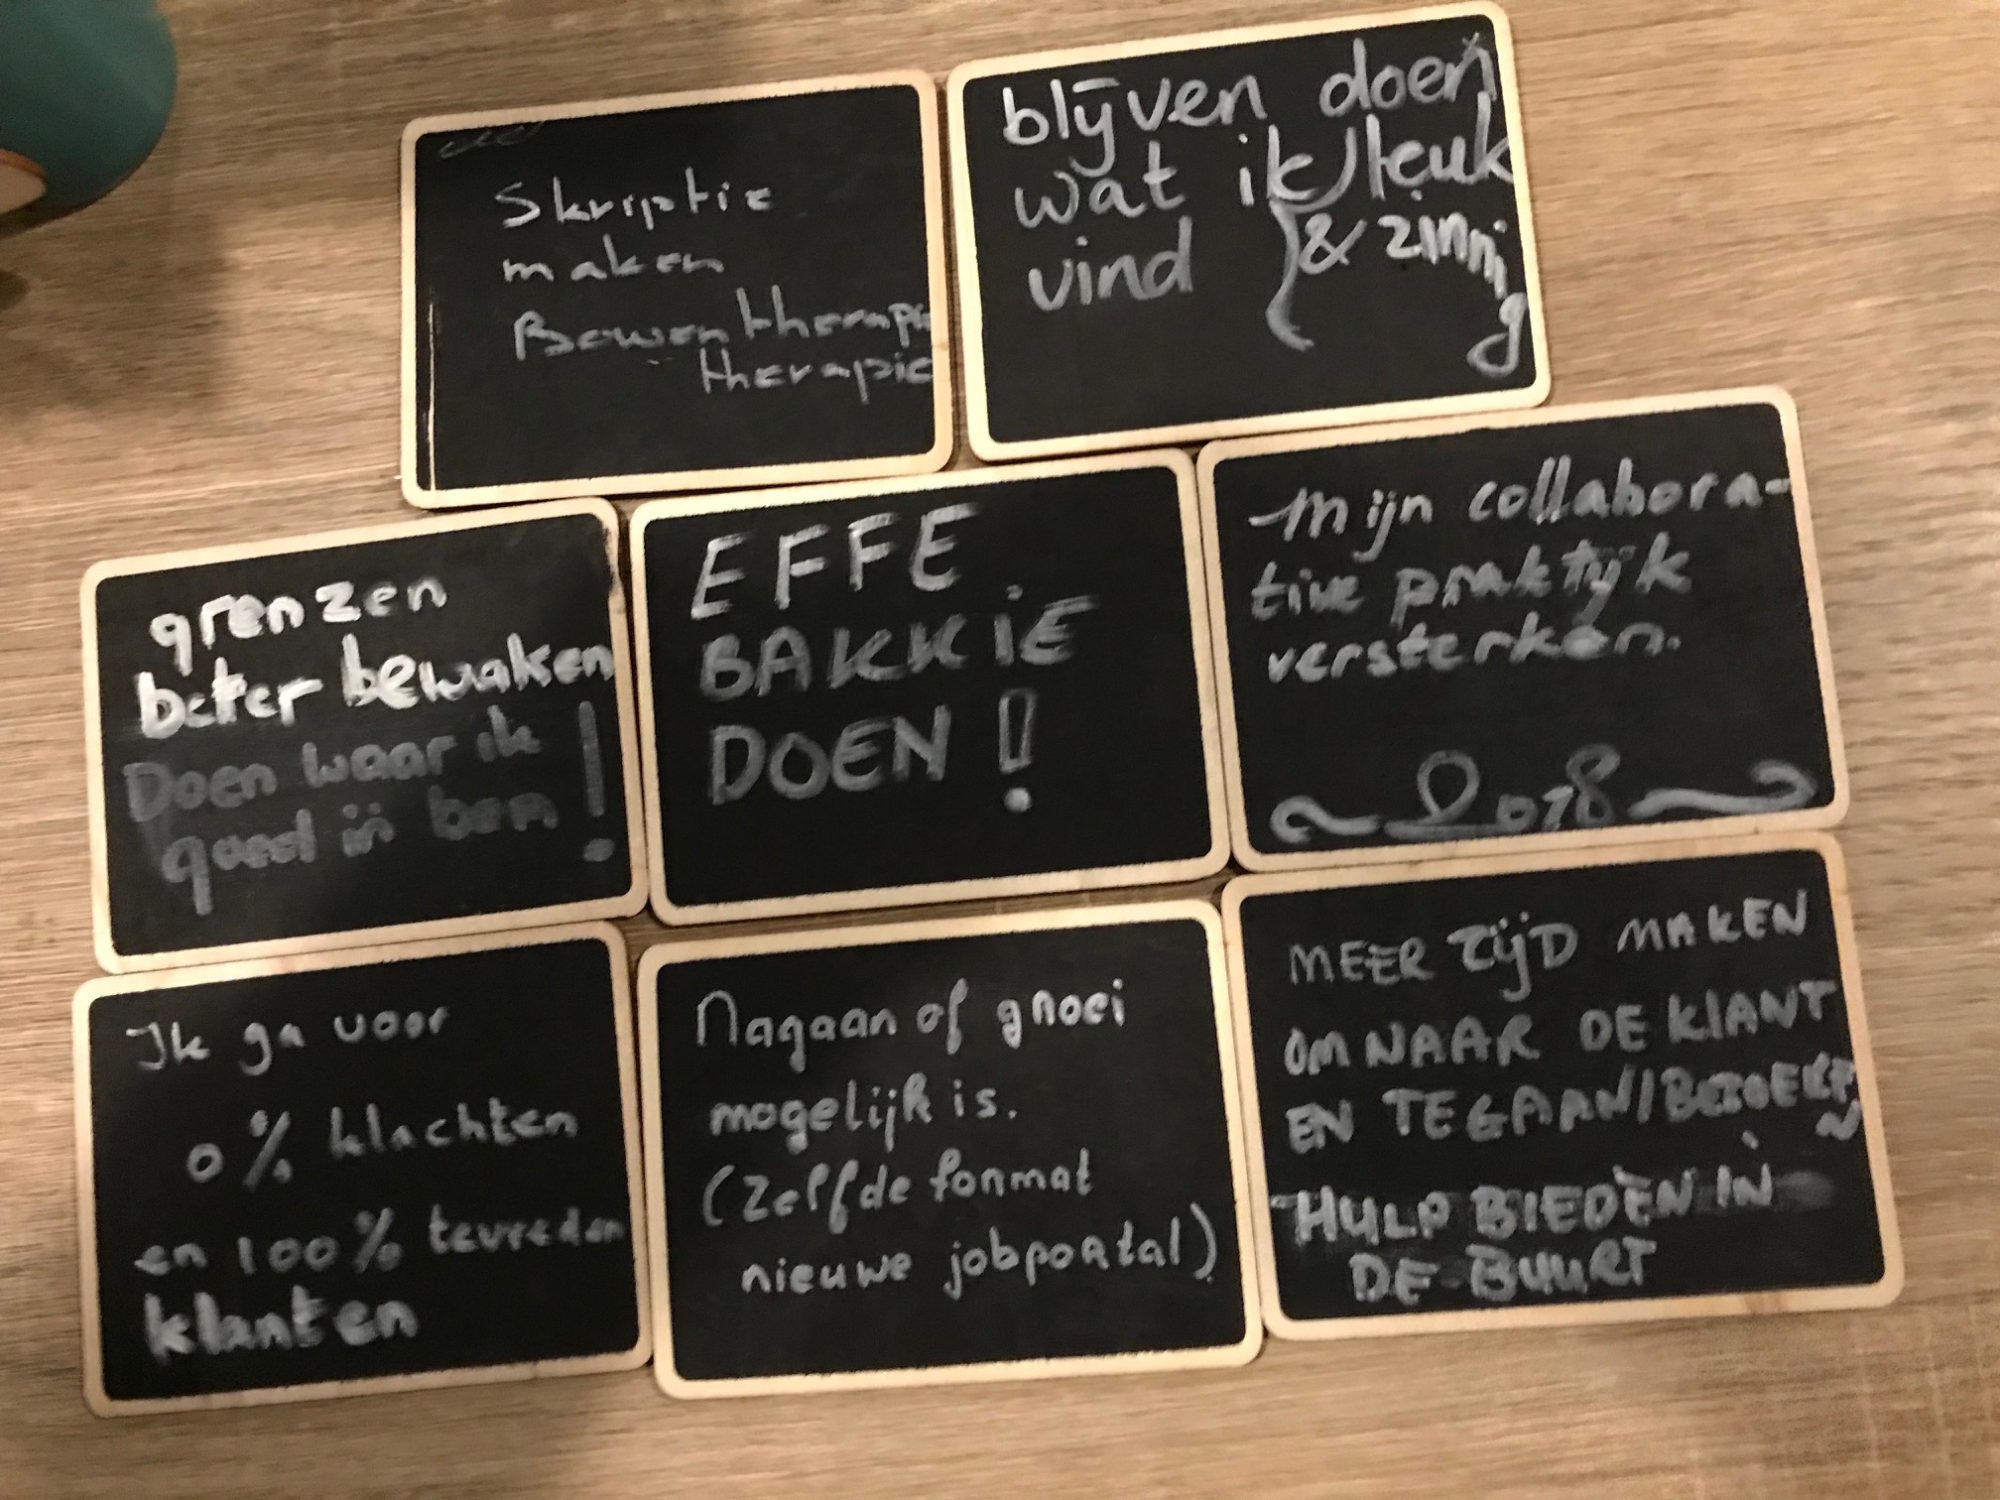 Skriptie
maken
Bowentherapie
therapie
blijven doen
wat ik leuk
& zinnig
vind
grenzen
beter bewaken
Doen waar ik
goed in ben!
EFFE
BAKKIE
DOEN!
Mijn collabora-
tive praktijk
versterken.
2018
Ik ga voor
0% klachten
en 100% tevreden
klanten
Nagaan of groei
mogelijk is.
(Zelfde format
nieuwe jobportal)
MEER TIJD MAKEN
OM NAAR DE KLANT
EN TE GAAN/BEZOEKEN
HULP BIEDEN IN
DE BUURT